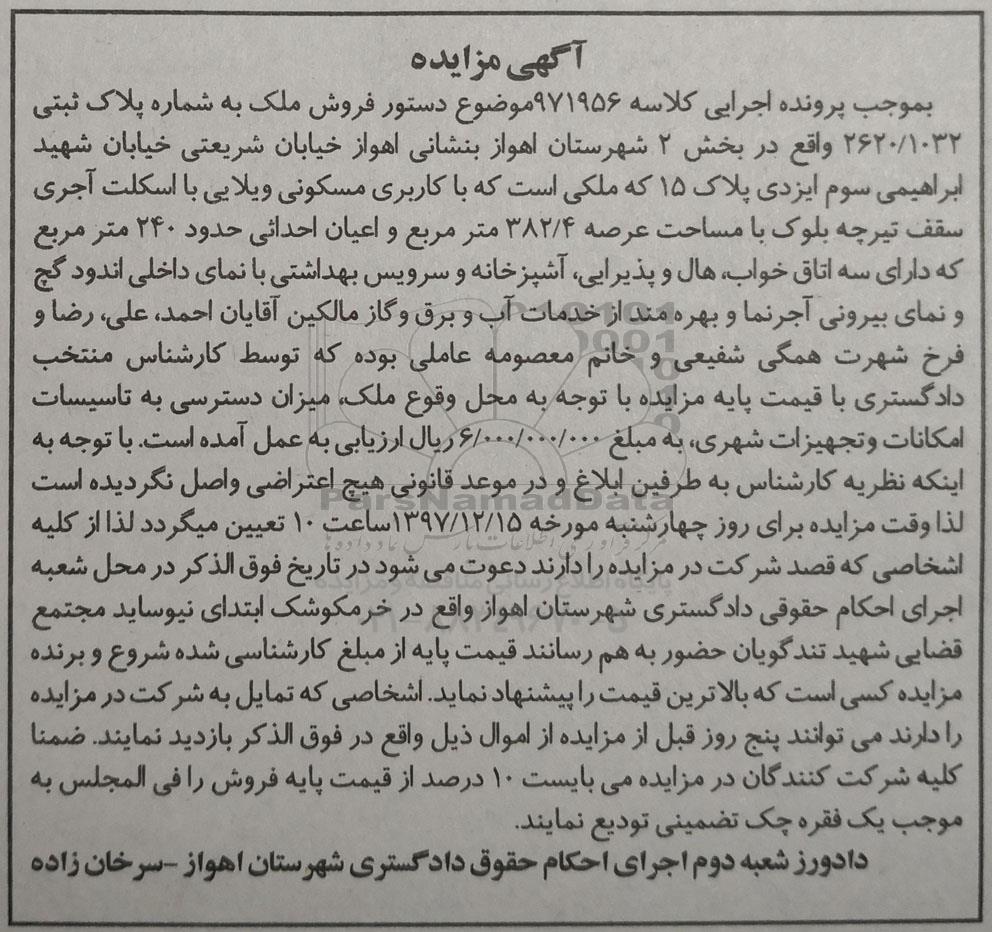 آگهی مزایده
بموجب پرونده اجرایی کلاسه ۹۷۱۹۵۶موضوع دستور فروش ملک به شماره پلاک ثبتی
۲۶۲۰/۱۰۳۲ واقع در بخش ۲ شهرستان اهواز بنشانی اهواز خیابان شریعتی خیابان شهید
ابراهیمی سوم ایزدی پلاک ۱۵ که ملکی است که با کاربری مسکونی ویلایی با اسکلت آجری
سقف تیرچه بلوک با مساحت عرصه ۳۸۲/۴ متر مربع و اعیان احداثی حدود ۲۴۰ متر مربع
که دارای سه اتاق خواب، هال و پذیرایی، آشپزخانه و سرویس بهداشتی با نمای داخلی اندود گچ
و نمای بیرونی آجرنما و بهره مند از خدمات آب و برق و گاز مالکین آقایان احمد، علی، رضا و
فرخ شهرت همگی شفیعی و خانم معصومه عاملی بوده که توسط کارشناس منتخب
دادگستری با قیمت پایه مزایده با توجه به محل وقوع ملک، میزان دسترسی به تاسیسات
امکانات وتجهیزات شهری، به مبلغ ۶/۰۰۰/۰۰۰/۰۰۰ ریال ارزیابی به عمل آمده است. با توجه به
اینکه نظریه کارشناس به طرفین ابلاغ و در موعد قانونی هیچ اعتراضی واصل نگردیده است
لذا وقت مزایده برای روز چهارشنبه مورخه ۱۳۹۷/۱۲/۱۵ساعت ۱۰ تعیین میگردد لذا از کلیه
اشخاصی که قصد شرکت در مزایده را دارند دعوت می شود در تاریخ فوق الذکر در محل شعبه
اجرای احکام حقوقی دادگستری شهرستان اهواز واقع در خرمکوشک ابتدای نیوساید مجتمع
قضایی شهید تندگویان حضور به هم رسانند قیمت پایه از مبلغ کارشناسی شده شروع و برنده
مزایده کسی است که بالاترین قیمت را پیشنهاد نماید. اشخاصی که تمایل به شرکت در مزایده
را دارند می توانند پنج روز قبل از مزایده از اموال ذیل واقع در فوق الذکر بازدید نمایند. ضمنا
کلیه شرکت کنندگان در مزایده می بایست ۱۰ درصد از قیمت پایه فروش را فی المجلس به
موجب یک فقره چک تضمینی تودیع نمایند.
دادورز شعبه دوم اجرای احکام حقوق دادگستری شهرستان اهواز -سرخان زاده
ParsNamadData